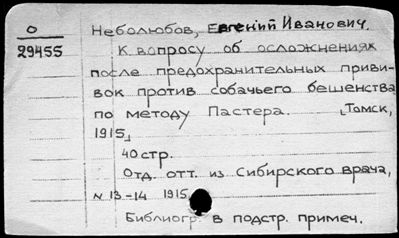 О Неболюбов, Евгений Иванович.
29455 К вопросу об осложнениях
после предохранительных приви-
вок против собачьего бешенства
по методу Пастера. [Томск,
1915]
40 стр.
Отд. отт. из Сибирского врача,
N 13-14 1915
Библиогр. в подстр. примеч.